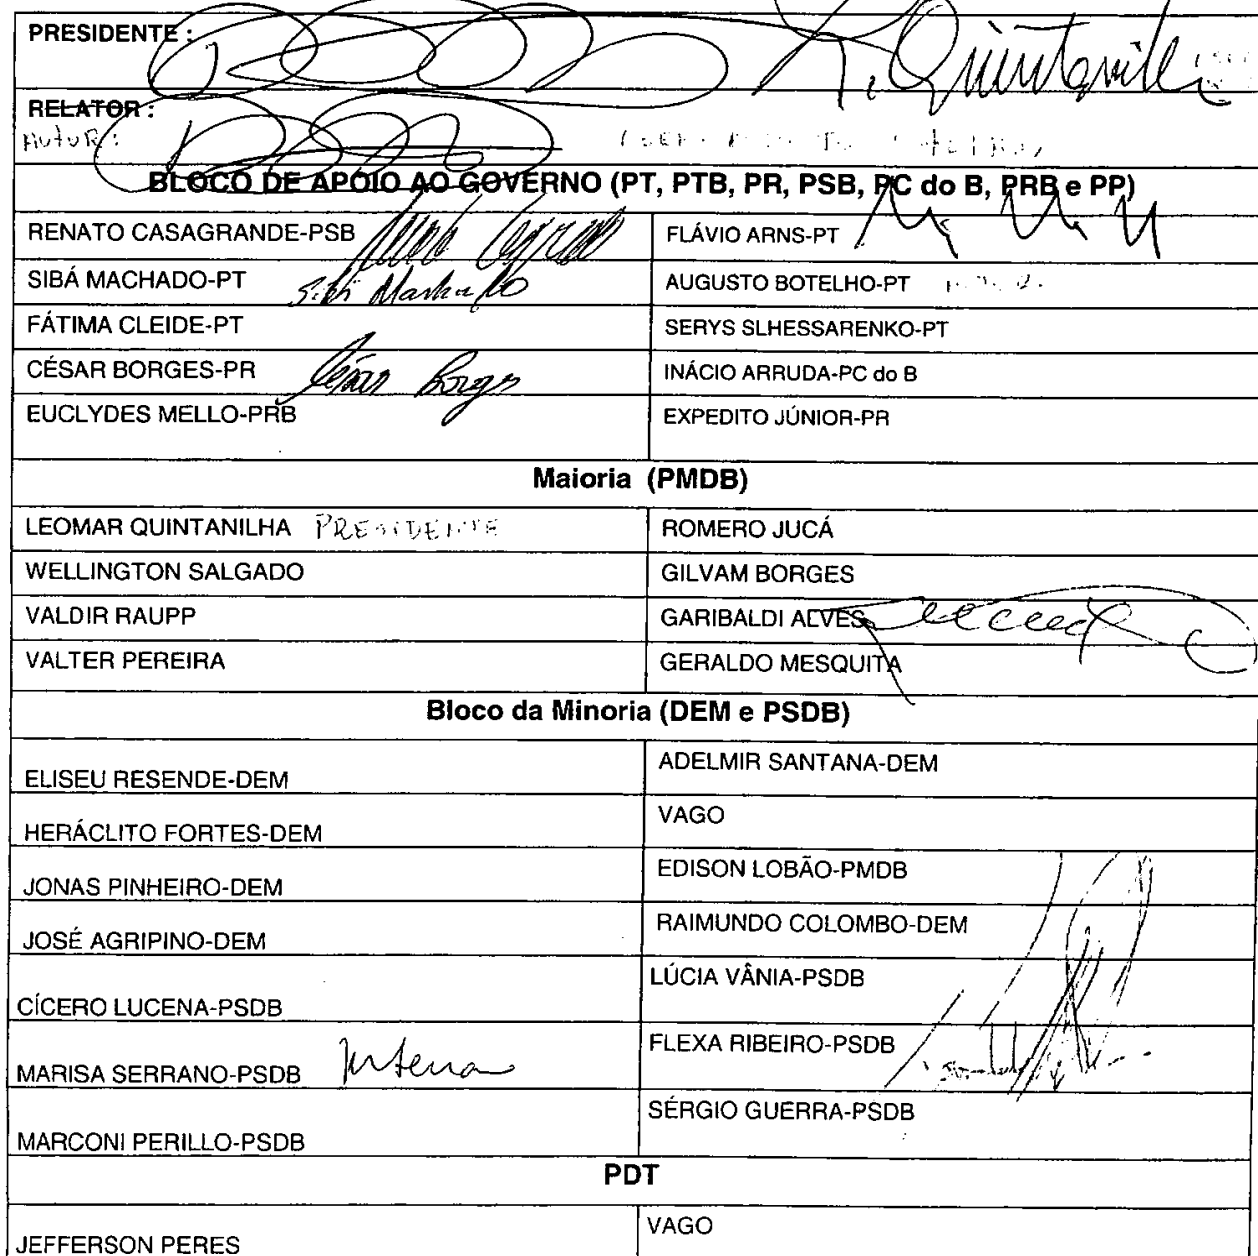 PRESIDENTE : L. Quintanilha
RELATOR :
AUTOR:
BLOCO DE APOIO AO GOVERNO (PT, PTB, PR, PSB, PC do B, PRB e PP)
RENATO CASAGRANDE-PSB
FLÁVIO ARNS-PT
SIBÁ MACHADO-PT Sibá Machado
AUGUSTO BOTELHO-PT
FÁTIMA CLEIDE-PT
SERYS SLHESSARENKO-PT
CÉSAR BORGES-PR César Borges
INÁCIO ARRUDA-PC do B
EUCLYDES MELLO-PRB
EXPEDITO JÚNIOR-PR
Maioria (PMDB)
LEOMAR QUINTANILHA PRESIDENTE
ROMERO JUCÁ
WELLINGTON SALGADO
GILVAM BORGES
VALDIR RAUPP
GARIBALDI ALVES
VALTER PEREIRA
GERALDO MESQUITA
Bloco da Minoria (DEM e PSDB)
ELISEU RESENDE-DEM
ADELMIR SANTANA-DEM
HERÁCLITO FORTES-DEM
VAGO
JONAS PINHEIRO-DEM
EDISON LOBÃO-PMDB
JOSÉ AGRIPINO-DEM
RAIMUNDO COLOMBO-DEM
CÍCERO LUCENA-PSDB
LÚCIA VÂNIA-PSDB
MARISA SERRANO-PSDB
FLEXA RIBEIRO-PSDB
MARCONI PERILLO-PSDB
SÉRGIO GUERRA-PSDB
PDT
JEFFERSON PERES
VAGO